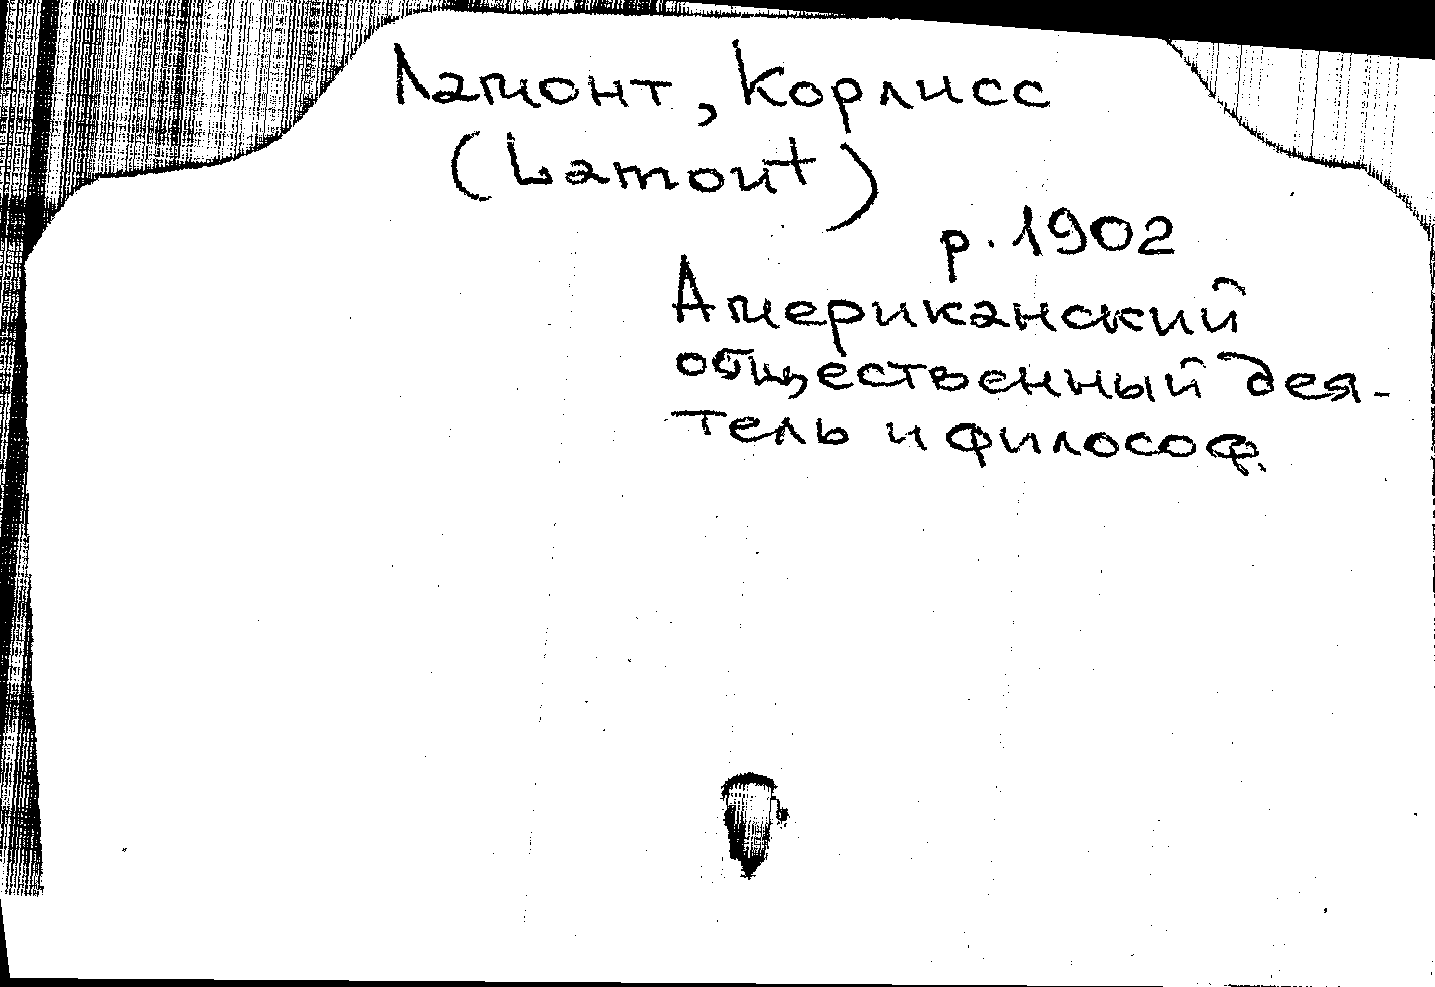 Ламонт, Корлисс
(Lamont)
р. 1902
Американский
общественный дея-
тель и философ.